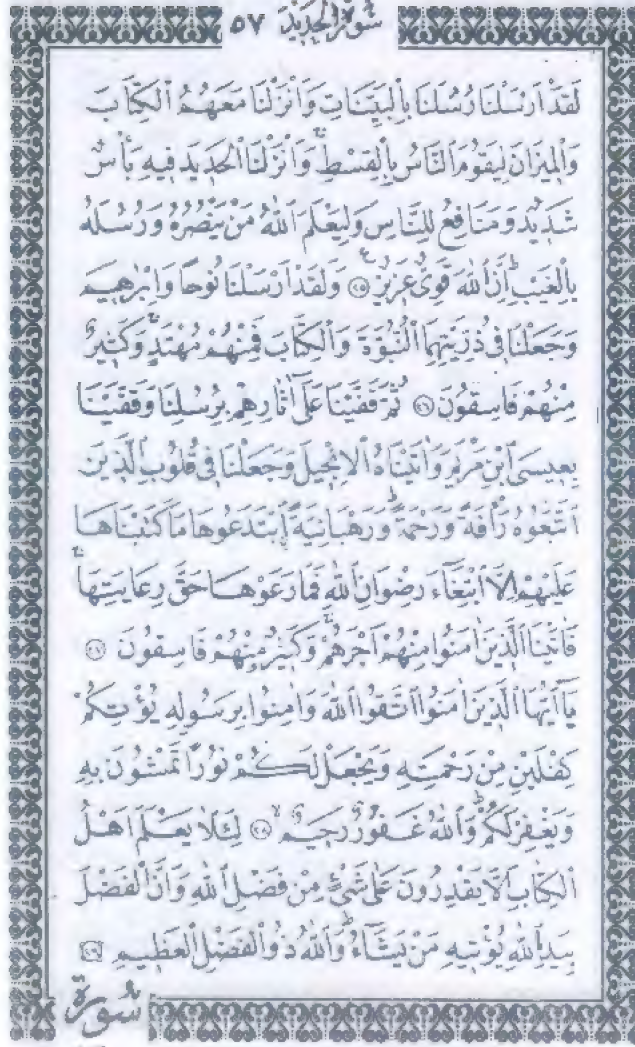 سُورَةُ الْحَدِيدِ ٥٧
لَقَدْ اَرْسَلْنَا رُسُلَنَا بِالْبَيِّنَاتِ وَاَنْزَلْنَا مَعَهُمُ الْكِتَابَ
وَالْمِيزَانَ لِيَقُومَ النَّاسُ بِالْقِسْطِۚ وَاَنْزَلْنَا الْحَدِيدَ فِيهِ بَأْسٌ
شَدِيدٌ وَمَنَافِعُ لِلنَّاسِ وَلِيَعْلَمَ اللّٰهُ مَنْ يَنْصُرُهُ وَرُسُلَهُ
بِالْغَيْبِۜ اِنَّ اللّٰهَ قَوِىٌّ عَزِيزٌ ﴿٢٥﴾ وَلَقَدْ اَرْسَلْنَا نُوحًا وَاِبْرٰهِيمَ
وَجَعَلْنَا فِى ذُرِّيَّتِهِمَا النُّبُوَّةَ وَالْكِتَابَ فَمِنْهُمْ مُهْتَدٍۚ وَكَثِيرٌ
مِنْهُمْ فَاسِقُونَ ﴿٢٦﴾ ثُمَّ قَفَّيْنَا عَلٰٓى اٰثَارِهِمْ بِرُسُلِنَا وَقَفَّيْنَا
بِعِيسَى ابْنِ مَرْيَمَ وَاٰتَيْنَاهُ الْاِنْجِيلَ وَجَعَلْنَا فِى قُلُوبِ الَّذِينَ
اتَّبَعُوهُ رَأْفَةً وَرَحْمَةًۜ وَرَهْبَانِيَّةً ابْتَدَعُوهَا مَا كَتَبْنَاهَا
عَلَيْهِمْ اِلَّا ابْتِغَٓاءَ رِضْوَانِ اللّٰهِ فَمَا رَعَوْهَا حَقَّ رِعَايَتِهَاۚ
فَاٰتَيْنَا الَّذِينَ اٰمَنُوا مِنْهُمْ اَجْرَهُمْۚ وَكَثِيرٌ مِنْهُمْ فَاسِقُونَ ﴿٢٧﴾
يَٓا اَيُّهَا الَّذِينَ اٰمَنُوا اتَّقُوا اللّٰهَ وَاٰمِنُوا بِرَسُولِهِ يُؤْتِكُمْ
كِفْلَيْنِ مِنْ رَحْمَتِهِ وَيَجْعَلْ لَكُمْ نُورًا تَمْشُونَ بِهِ
وَيَغْفِرْ لَكُمْۜ وَاللّٰهُ غَفُورٌ رَحِيمٌۙ ﴿٢٨﴾ لِئَلَّا يَعْلَمَ اَهْلُ
الْكِتَابِ اَلَّا يَقْدِرُونَ عَلٰى شَىْءٍ مِنْ فَضْلِ اللّٰهِ وَاَنَّ الْفَضْلَ
بِيَدِ اللّٰهِ يُؤْتِيهِ مَنْ يَشَٓاءُۜ وَاللّٰهُ ذُو الْفَضْلِ الْعَظِيمِ ﴿٢٩﴾
سُورَةُ